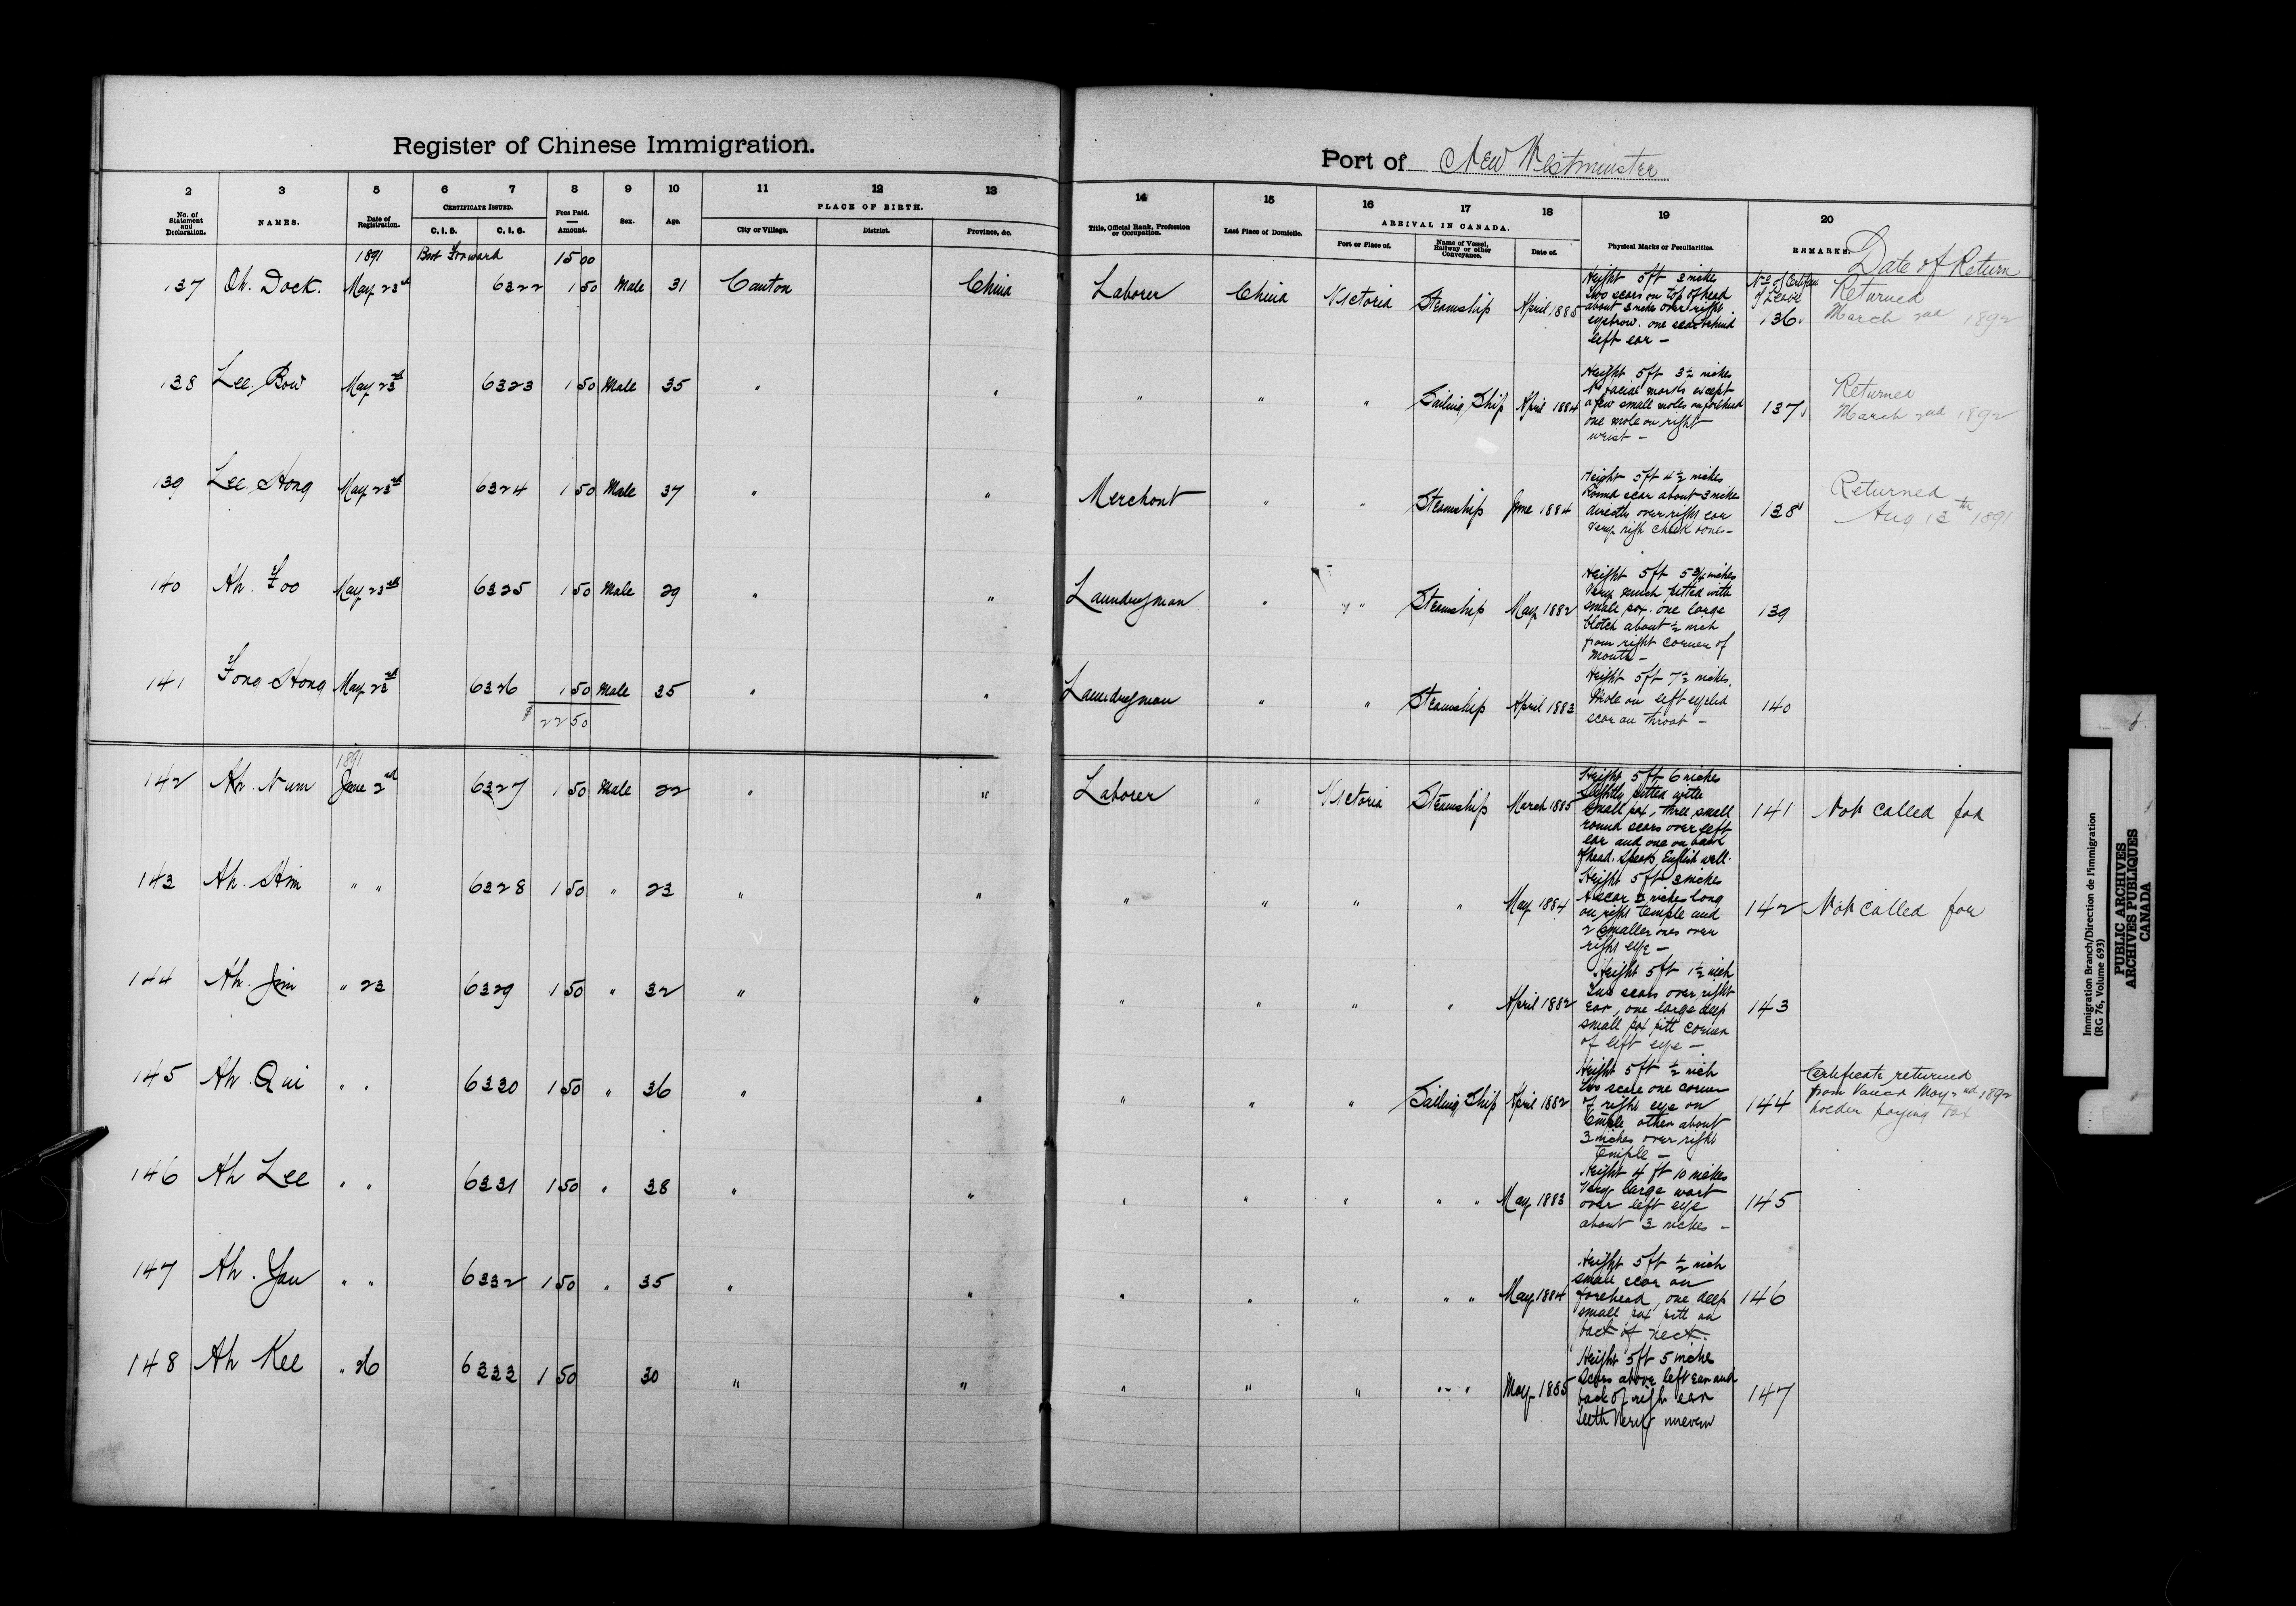 Register of Chinese Immigration.
Port of New Westminster
2 3 5 6 7 8 9 10 11 12 13 14 15 16 17 18 19 20
No. of Statement and Declaration. NAMES. Date of Registration. CERTIFICATE ISSUED. C.I.5. C.I.6. Fees Paid. Amount. Sex. Age. PLACE OF BIRTH. City or Village. District. Province, &c. Title, Official Rank, Profession or Occupation. Last Place of Domicile. ARRIVAL IN CANADA. Port or Place of. Name of Vessel, Railway or other Conveyance. Date of. Physical Marks or Peculiarities. REMARKS.
Date of Return
1891 Bort Forward 15 00
137 Oh. Dock. May 23rd 6322 1 50 Male 31 Canton China Laborer China Victoria Steamship April 1885
Height 5ft 3 inches
Two scars on top of head
about 3 inches over right
eyebrow. one scar behind
left ear –
No of Certifcate
of Leave
136.
Returned
March 2nd 1892
138 Lee. Bow May 23rd 6323 1 50 Male 35 " " " " " Sailing Ship April 1884
Height 5ft 3½ inches
No facial marks except
a few small moles on forehead
one mole on right
wrist –
137
Returned
March 2nd 1892
139 Lee. Hong May 23rd 6324 1 50 Male 37 " " Merchant " " Steamship June 1884
Height 5ft 4½ inches
Round scar about 3 inches
directly over right ear
very high cheek bones –
138
Returned
Aug 13th 1891
140 Ah. Foo May 23rd 6325 1 50 Male 29 " " Laundryman " " Steamship May 1882
Height 5ft 5¾ inches
Very much pitted with
small pox. one large
blotch about ½ inch
from right corner of
mouth –
139
141 Fong Hong May 23rd 6326 1 50 Male 35 " " Laundryman " " Steamship April 1883
Height 5ft 7½ inches.
Mole on left eyelid
scar on throat –
140
$ 22 50
1891
142 Ah. Num June 2nd 6327 1 50 Male 22 " " Laborer " Victoria Steamship March 1885
Height 5ft 6 inches
slightly pitted with
small pox, three small
round scars over left
ear and one on back
of head. speaks English well.
141 Not called for
143 Ah. Him " " 6328 1 50 " 23 " " " " " " May 1884
Height 5ft 3 inches
A scar 2 inches long
on right temple and
2 smaller ones over
right eye –
142 Not called for
144 Ah. Jim " 23 6329 1 50 " 32 " " " " " " April 1882
Height 5ft 1½ inch
Two scars over right
ear, one large deep
small pox pitt corner
of left eye –
143
145 Ah. Qui " " 6330 1 50 " 36 " " " " " Sailing Ship April 1882
Height 5ft ½ inch
Two scars one corner
of right eye on
temple other about
3 inches over right
temple –
144
Certificate returned
from Vancr May 2nd 1892
holder paying tax
146 Ah Lee " " 6331 1 50 " 38 " " " " " " " May 1883
Height 4 ft 10 inches
Very large wart
over left eye
about 3 inches –
145
147 Ah. Yau " " 6332 1 50 " 35 " " " " " " " May 1884
Height 5ft ½ inch
small scar on
forehead, one deep
small pox pitt on
back of neck.
146
148 Ah Kee " 26 6333 1 50 30 " " " " " " " May 1885
Height 5ft 5 inches
Scars above left ear and
back of right ear
teeth very uneven
147
Immigration Branch/Direction de l'immigration
(RG 76, Volume 693)
PUBLIC ARCHIVES
ARCHIVES PUBLIQUES
CANADA